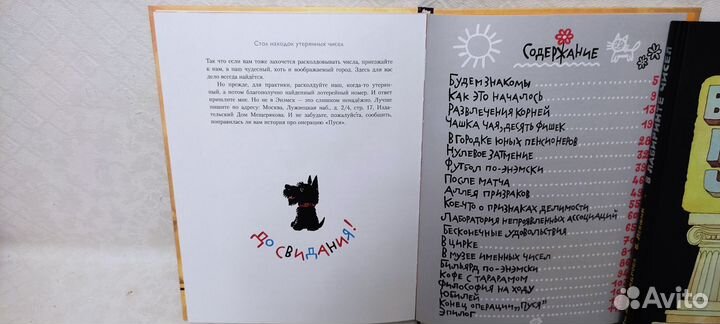 Стол находок утерянных чисел
Так что если вам тоже захочется расколдовывать числа, приезжайте
к нам, в наш чудесный, хоть и воображаемый город. Здесь для вас
дело всегда найдётся.
Но прежде, для практики, расколдуйте наш, когда-то утерян-
ный, а потом благополучно найденный лотерейный номер. И ответ
пришлите мне. Но не в Энэмск — это слишком ненадёжно. Лучше
пишите по адресу: Москва, Лужнецкая наб., д. 2/4, стр. 17, Изда-
тельский Дом Мещерякова. И не забудьте, пожалуйста, сообщить,
понравилась ли вам история про операцию «Пуся».
До свидания!
Содержание
Будем знакомы 5
Как это началось 9
Развлечения корней 13
Чашка чая, десять фишек 19
В городке юных пенсионеров 28
Нулевое затмение 32
Футбол по-энэмски 39
После матча 46
Аллея призраков 49
Кое-что о признаках делимости 55
Лаборатория непроявленных ассоциаций 60
Бесконечные удовольствия 65
В цирке
В музее именных чисел
Бильярд по-энэмски
Кофе с тарарамом
Философия на ходу
Юбилей
Конец операции „Пуся"
Эпилог
В лабиринте чисел
Avito